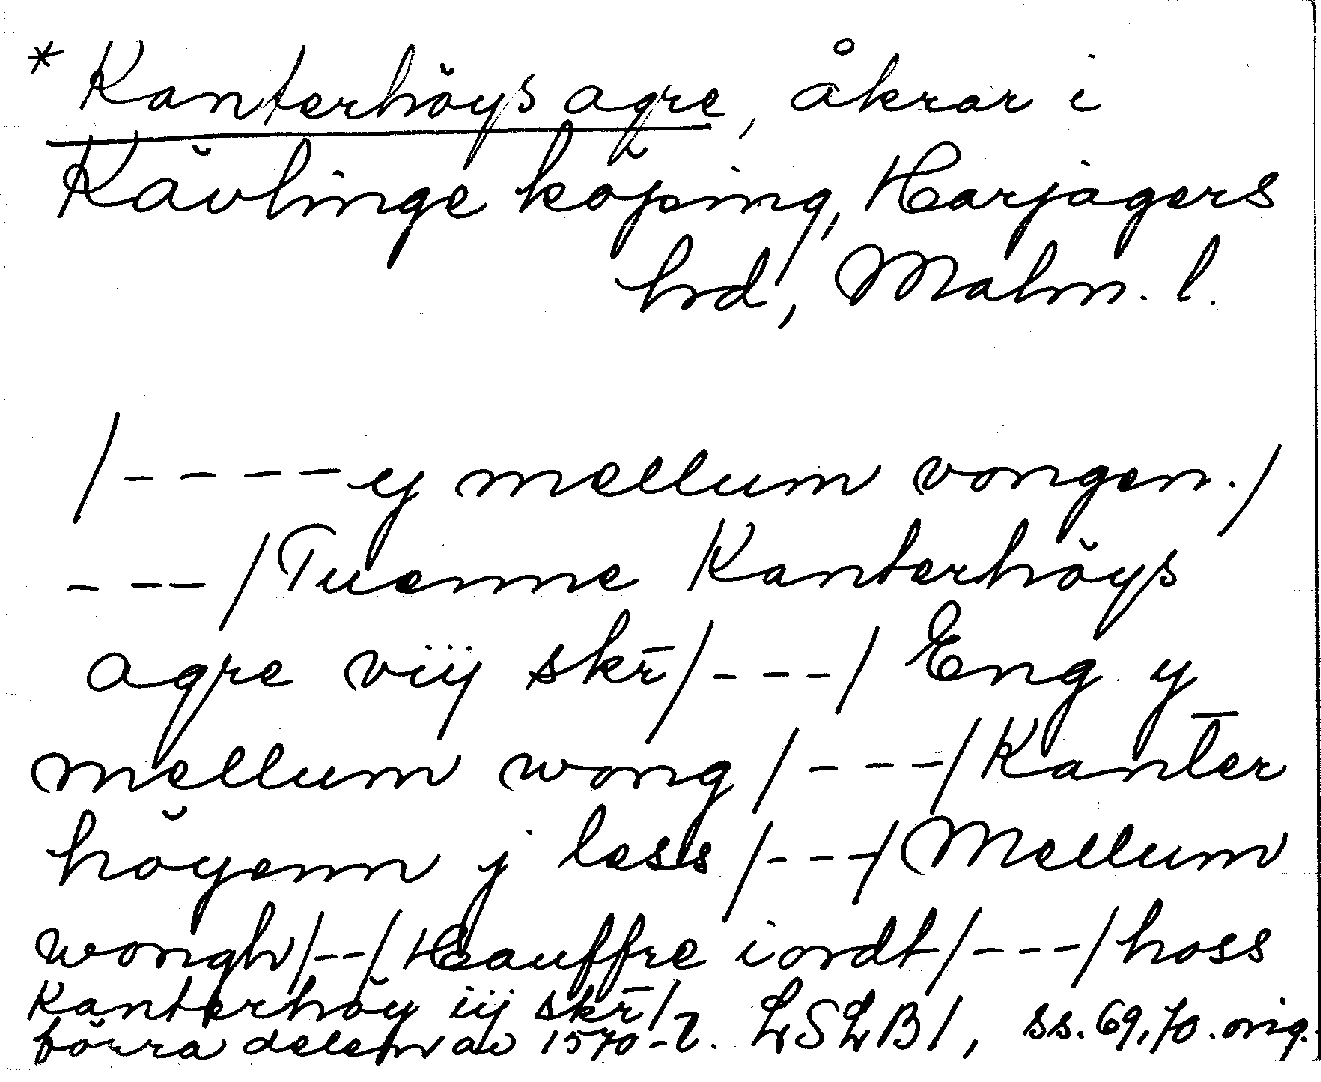 * Kanterhöys agre, åkrar i
Kävlinge köping, Harjagers
hrd, Malm. l.
/- - - - y mellum vongen./
- - - /Tuenne Kanterhöys
agre viij skr̄/- - -/ Eng y
mellum wong /- - -/Kanter
höyenn j less /- - -/ Mellum
wongh/- -/Hauffre iordt/- - -/hoss
Kanterhöy iij skr̄/
förra delen av 1570-t. LSLB1, ss. 69, 70. orig.